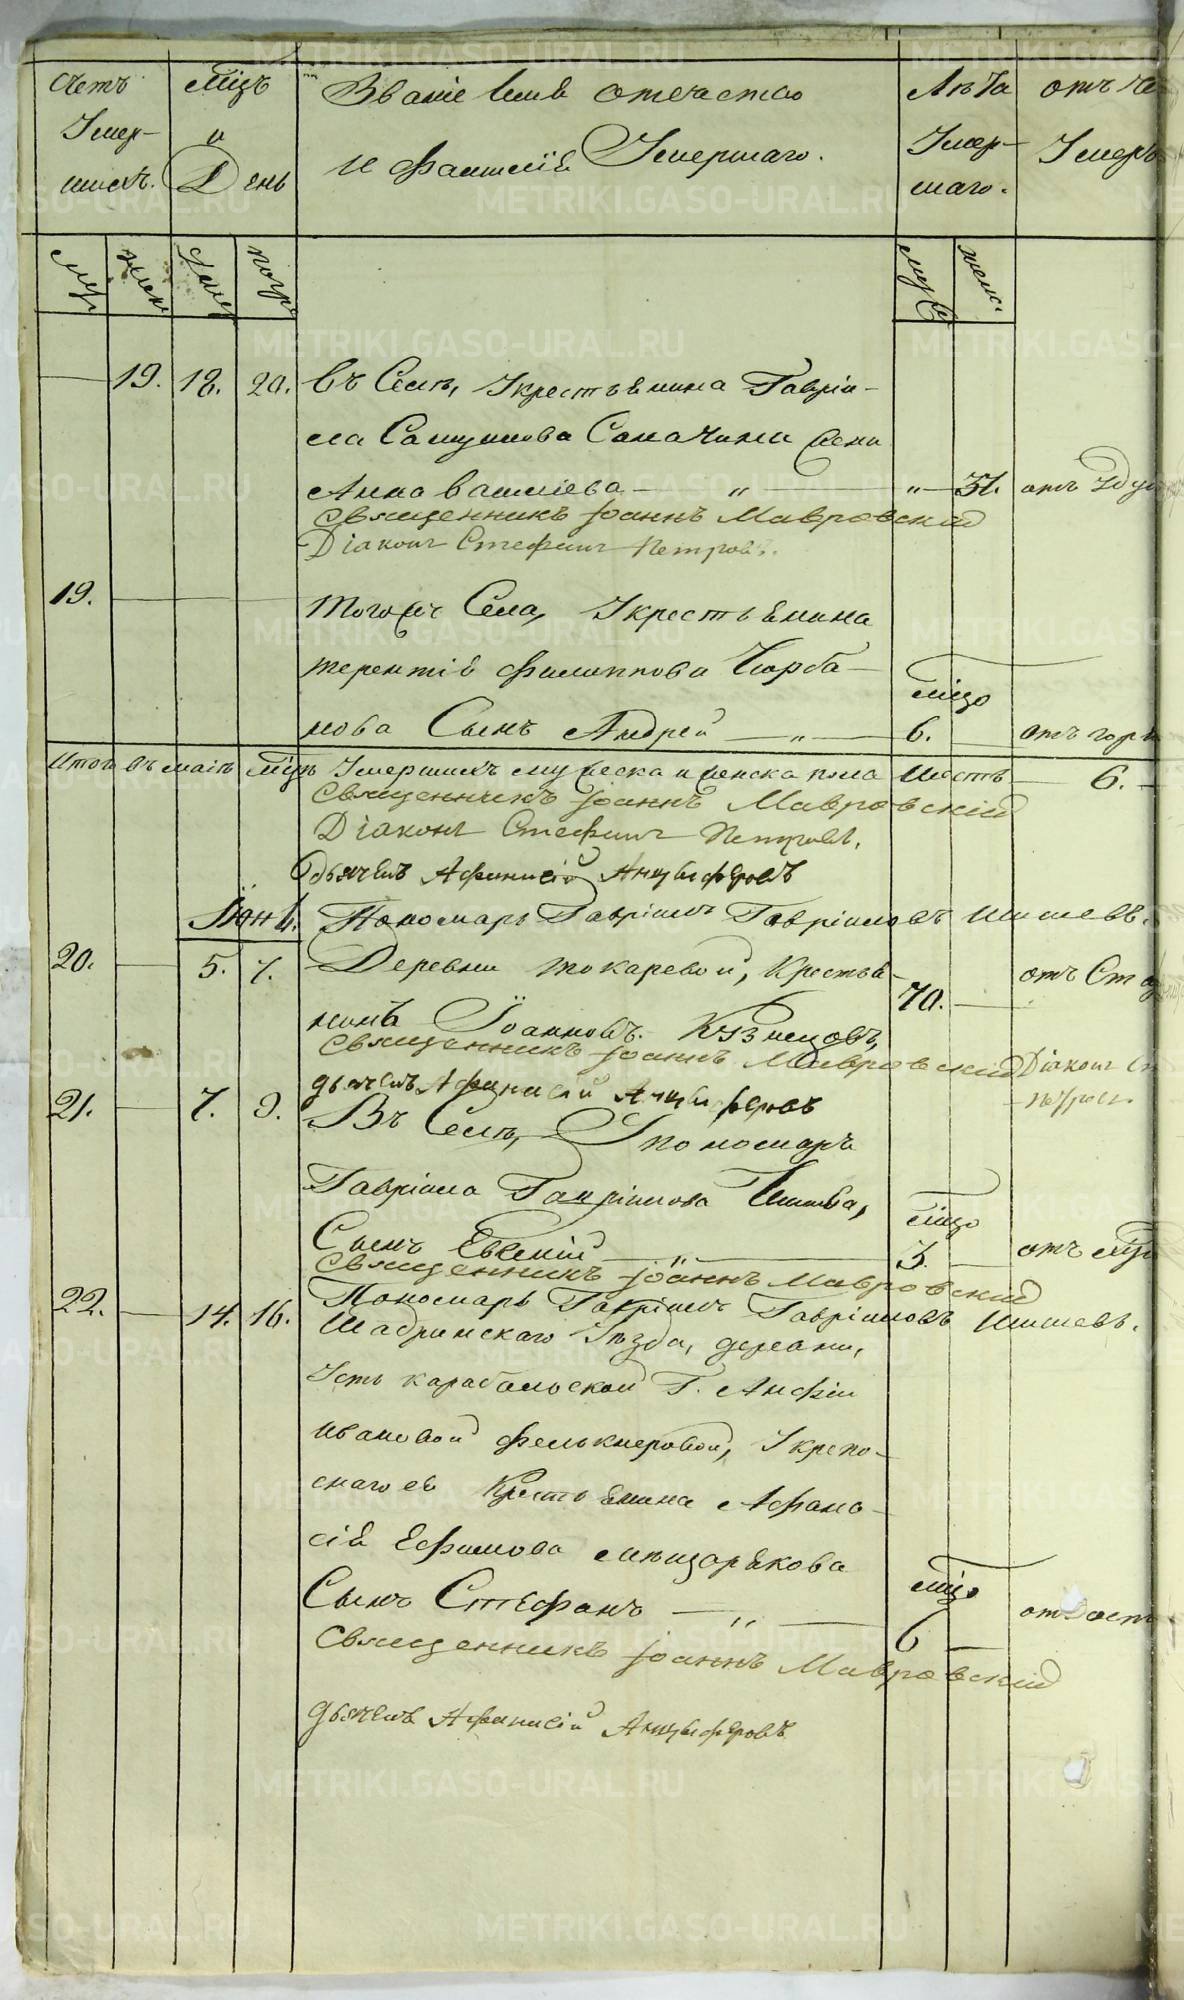 Счетъ Умер- шихъ.
Мцъ и День
Званіе Имя отечество
и Фамилія Умершаго.
Лѣта Умер- шаго.
отъ че
Умеръ
муж женс Смер погр
муже женс.
19. 18. 20. Въ Селѣ, У крестьянина Гаврiи-
ла Самуилова жена
Анна Василіева — „ — „ — 31. отъ
Священникъ Іоаннъ Мавровскій
Діаконъ Стефанъ Петровъ.
19. Того же Села, У крестьянина
Терентія Филиппова Чюрба-
мцо
нова Сынъ Андрей — „ — 6. отъ горя
Итого въ маіѣ мцѣ Умершихъ мужеска и женска пола Шесть 6.
Священникъ Іоаннъ Мавровскій
Діаконъ Стефанъ Петровъ.
Дьячекъ Афанасій Анцыферовъ
Іюнь. Пономарь Гавріилъ Гавріиловъ Шишевъ.
20. 5. 7. Деревни Токаревой, Крестья- отъ Ста
70.
нинъ Іоанновъ Кузнецовъ,
Священникъ Іоаннъ Мавровскій Діаконъ С
Петров.
Дьячекъ Афанасій Анцыферовъ
21. 7. 9. Въ Селѣ, У пономаря
Гавріила Гавріилова Шишева,
мцо
Сынъ Евгеній — „ — 3. отъ
Священникъ Іоаннъ Мавровскій
Пономарь Гавріилъ Гавріиловъ Шишевъ.
22. 14. 16. Шадринскаго Уѣзда, деревни,
Усть карабольской Г. Анфіи
Ивановой Фелькнеровой, У крепо-
снаго ея Крестьянина Афана-
сія Ефимова
мцо
Сынъ Стефанъ — „ — 6 отъ
Священникъ Іоаннъ Мавровскій
Дьячекъ Афанасій Анцыферовъ
METRIKI.GASO-URAL.RU